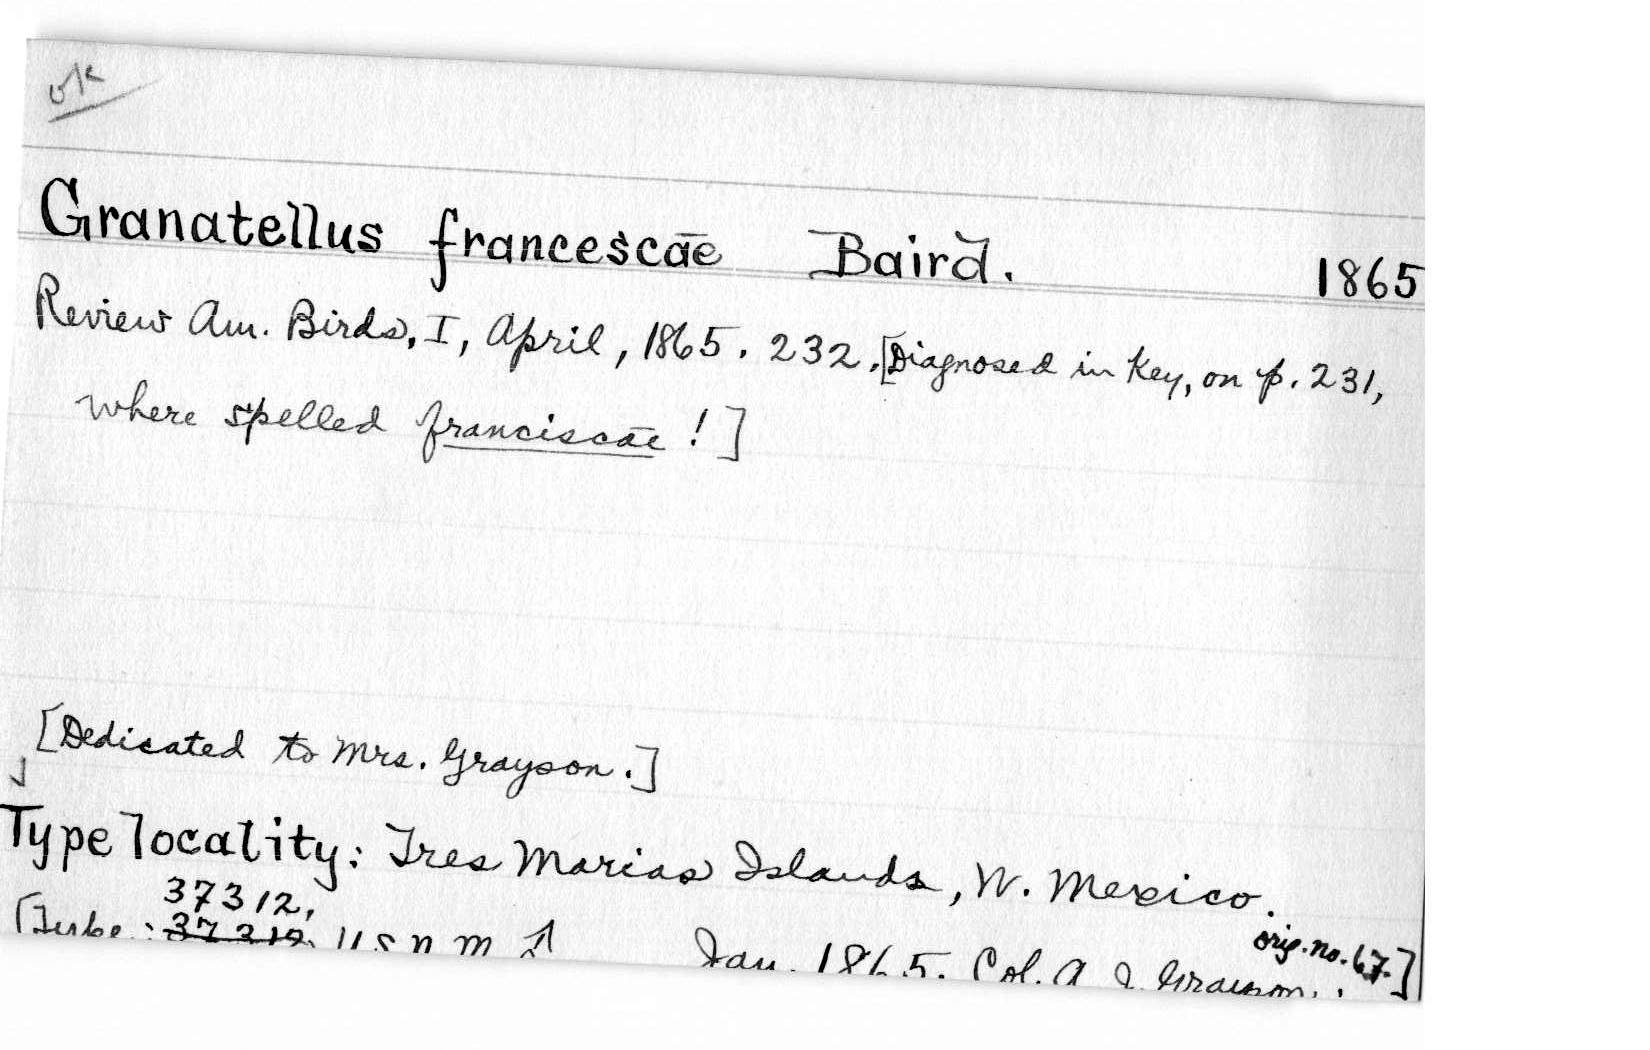 ok
Granatellus francescae Baird. 1865
Review Am. Birds, I, April, 1865. 232. [Diagnosed in Key, on p. 231,
where spelled franciscae ! ]
[Dedicated to Mrs. Grayson.]
Type locality: Tres Marias Islands, W. Mexico.
37312,
orig. no. 67.]
[Type: 37312, U S N M ♂ Jan. 1865. Col. A J. Grayson.